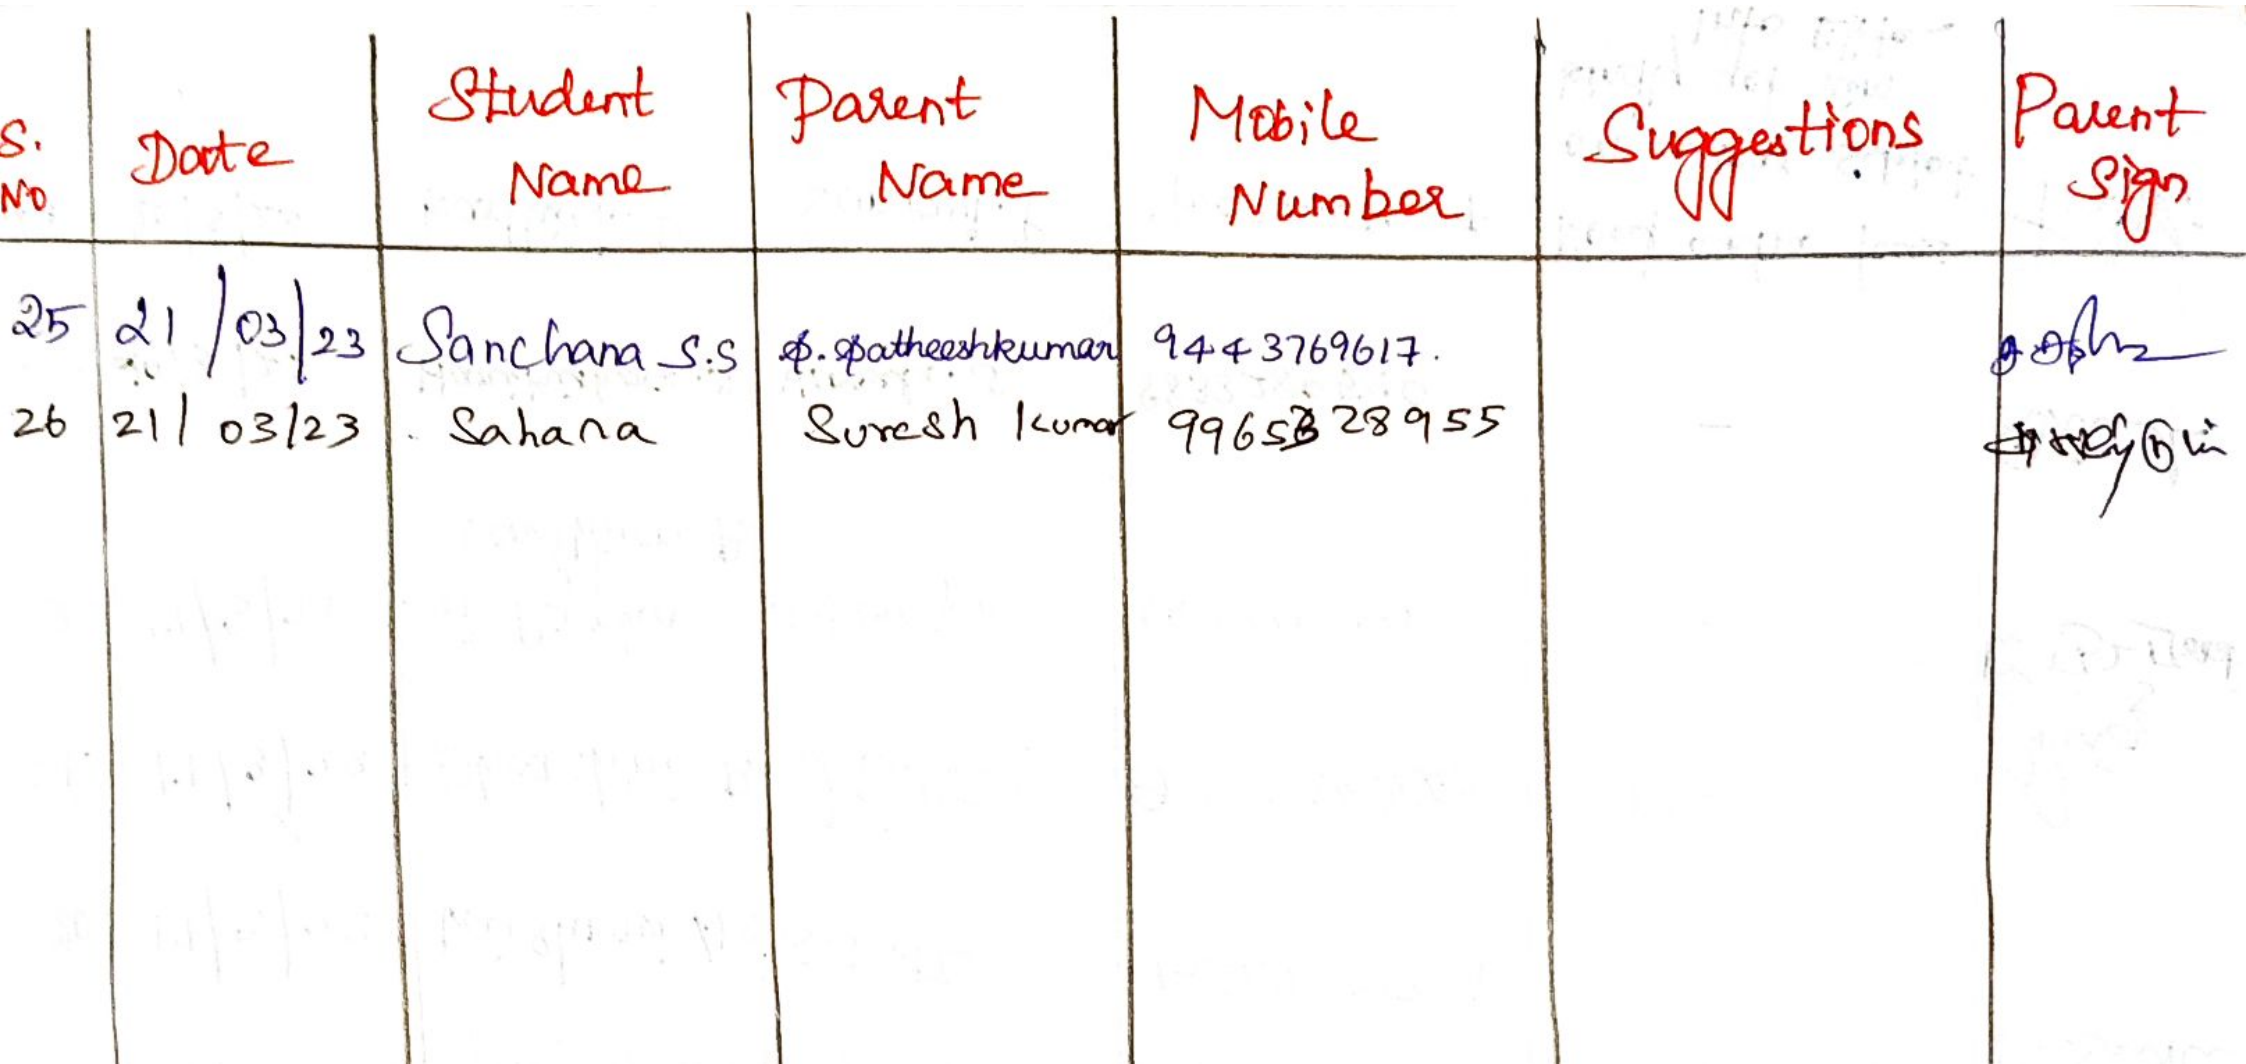 S. No Date Student Name Parent Name Mobile Number Suggestions Parent Sign
25 21/03/23 Sanchana S.S 9443769617.
26 21/03/23 Sahana Suresh Kumar 9965328955 -